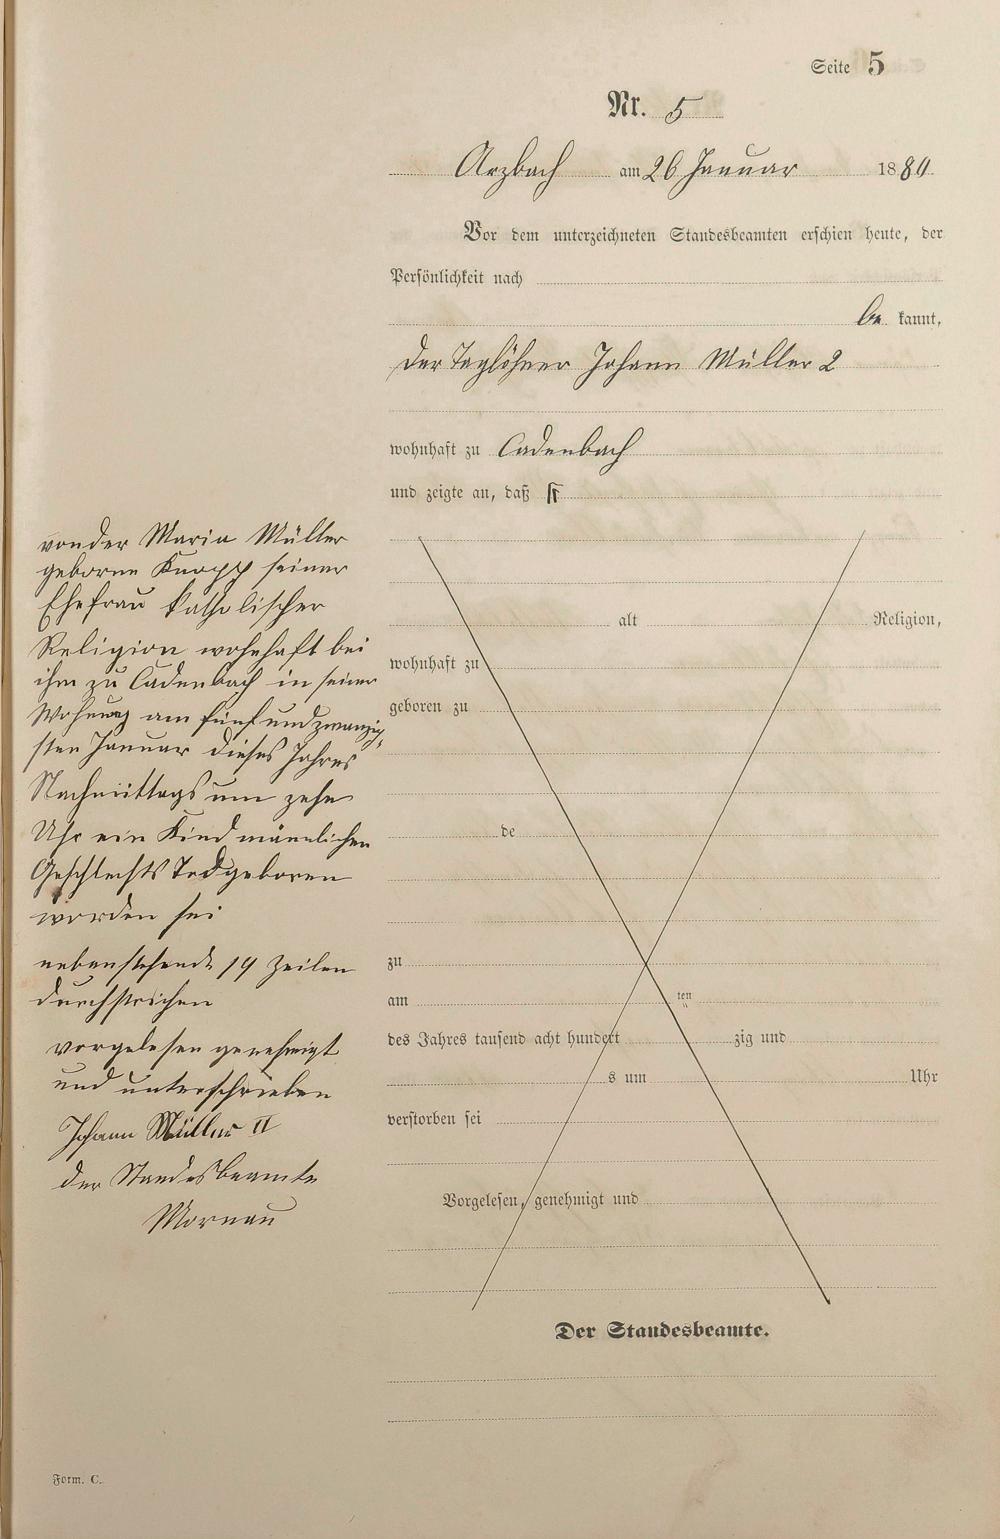 Seite 5
Nr. 5
Arzbach am 26 Januar 1880
Vor dem unterzeichneten Standesbeamten erschien heute, der
Persönlichkeit nach
be kannt,
der Taglöhner Johann Müller 2
wohnhaft zu Cadenbach
und zeigte an, daß
von der Maria Müller
geborne Knopp seiner
Ehefrau katholischer
Religion wohnhaft bei
ihm zu Cadenbach in seiner
Wohnung am fünfundzwanzig-
sten Januar dieses Jahres
Nachmittags um zehn
Uhr ein Kind männlichen
Geschlechts Todgeboren
worden sei
nebenstehende 19 Zeilen
durchstrichen
vorgelesen genehmigt
und unterschrieben
Johann Müller II
der Standesbeamte
Mornau
alt Religion,
wohnhaft zu
geboren zu
de
zu
am ten
des Jahres tausend acht hundert zig und
s um Uhr
verstorben sei
Vorgelesen, genehmigt und
Der Standesbeamte.
Form. C.